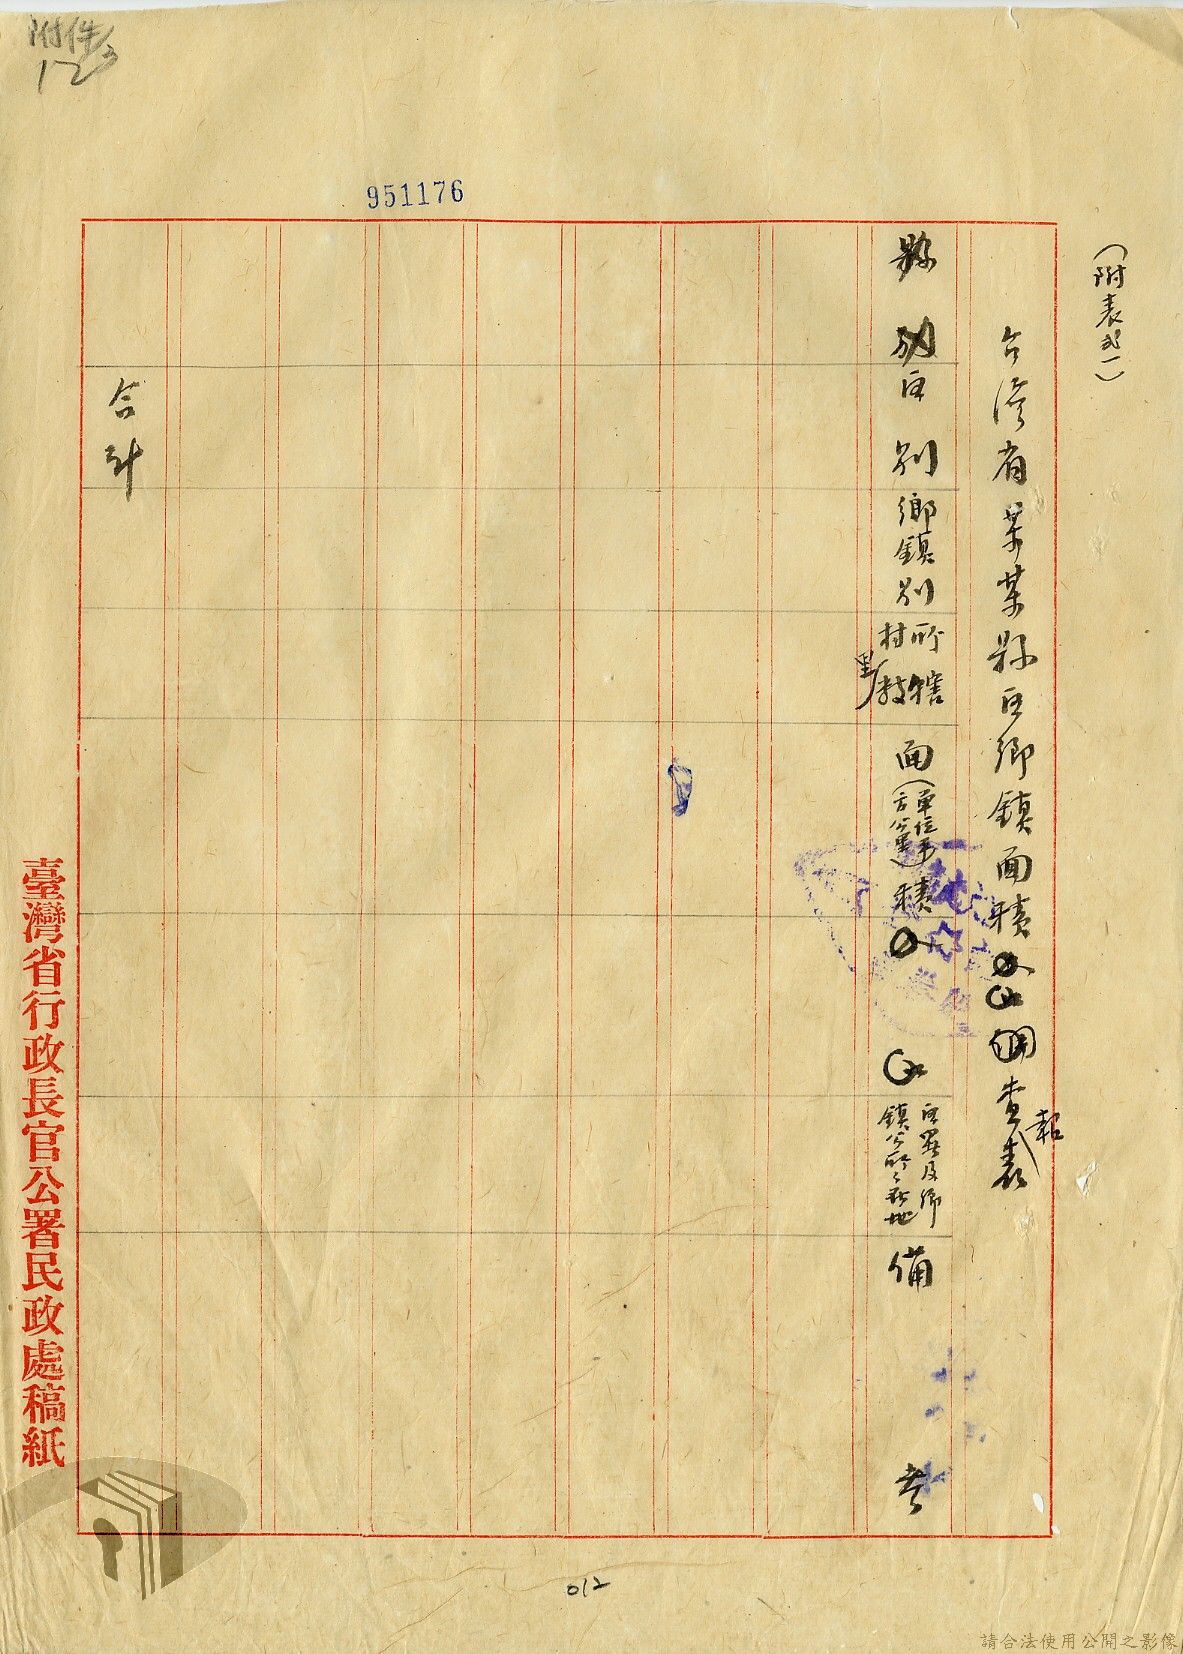 附件
12
951176
(附表式一)
台灣省某某縣區鄉鎮面積人口調查報表
縣別
區別
鄉鎮別
所轄
村里數
面積(單位平方公里)
人口
區署及鄉
鎮公所之所在地
備考
合計
臺灣省行政長官公署民政處稿紙
012
請合法使用公開之影像